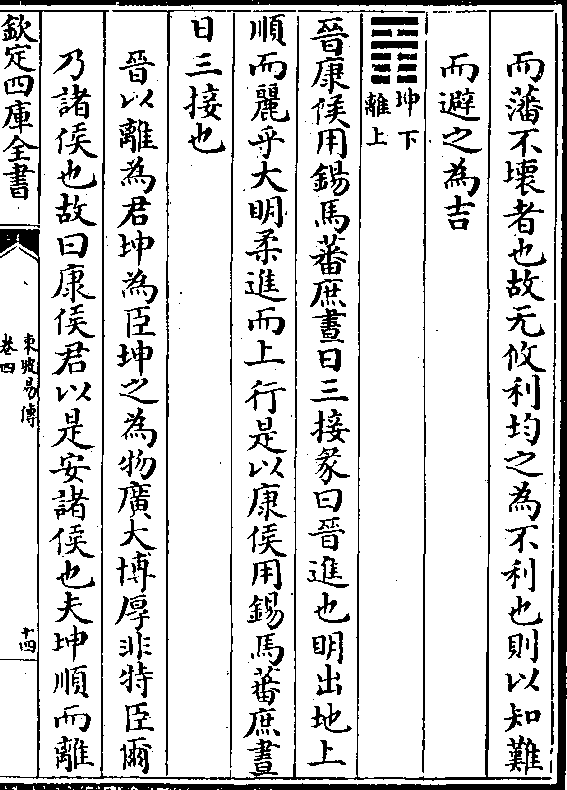 而藩不壞者也故无攸利均之為不利也則以知難
而避之為吉
坤下
離上
晉康侯用錫馬蕃庶晝日三接彖曰晉進也明出地上
順而麗乎大明柔進而上行是以康侯用錫馬蕃庶晝
日三接也
晉以離為君坤為臣坤之為物廣大博厚非特臣爾
乃諸侯也故曰康侯君以是安諸侯也夫坤順而離
欽定四庫全書
東坡易傳
卷四
十四